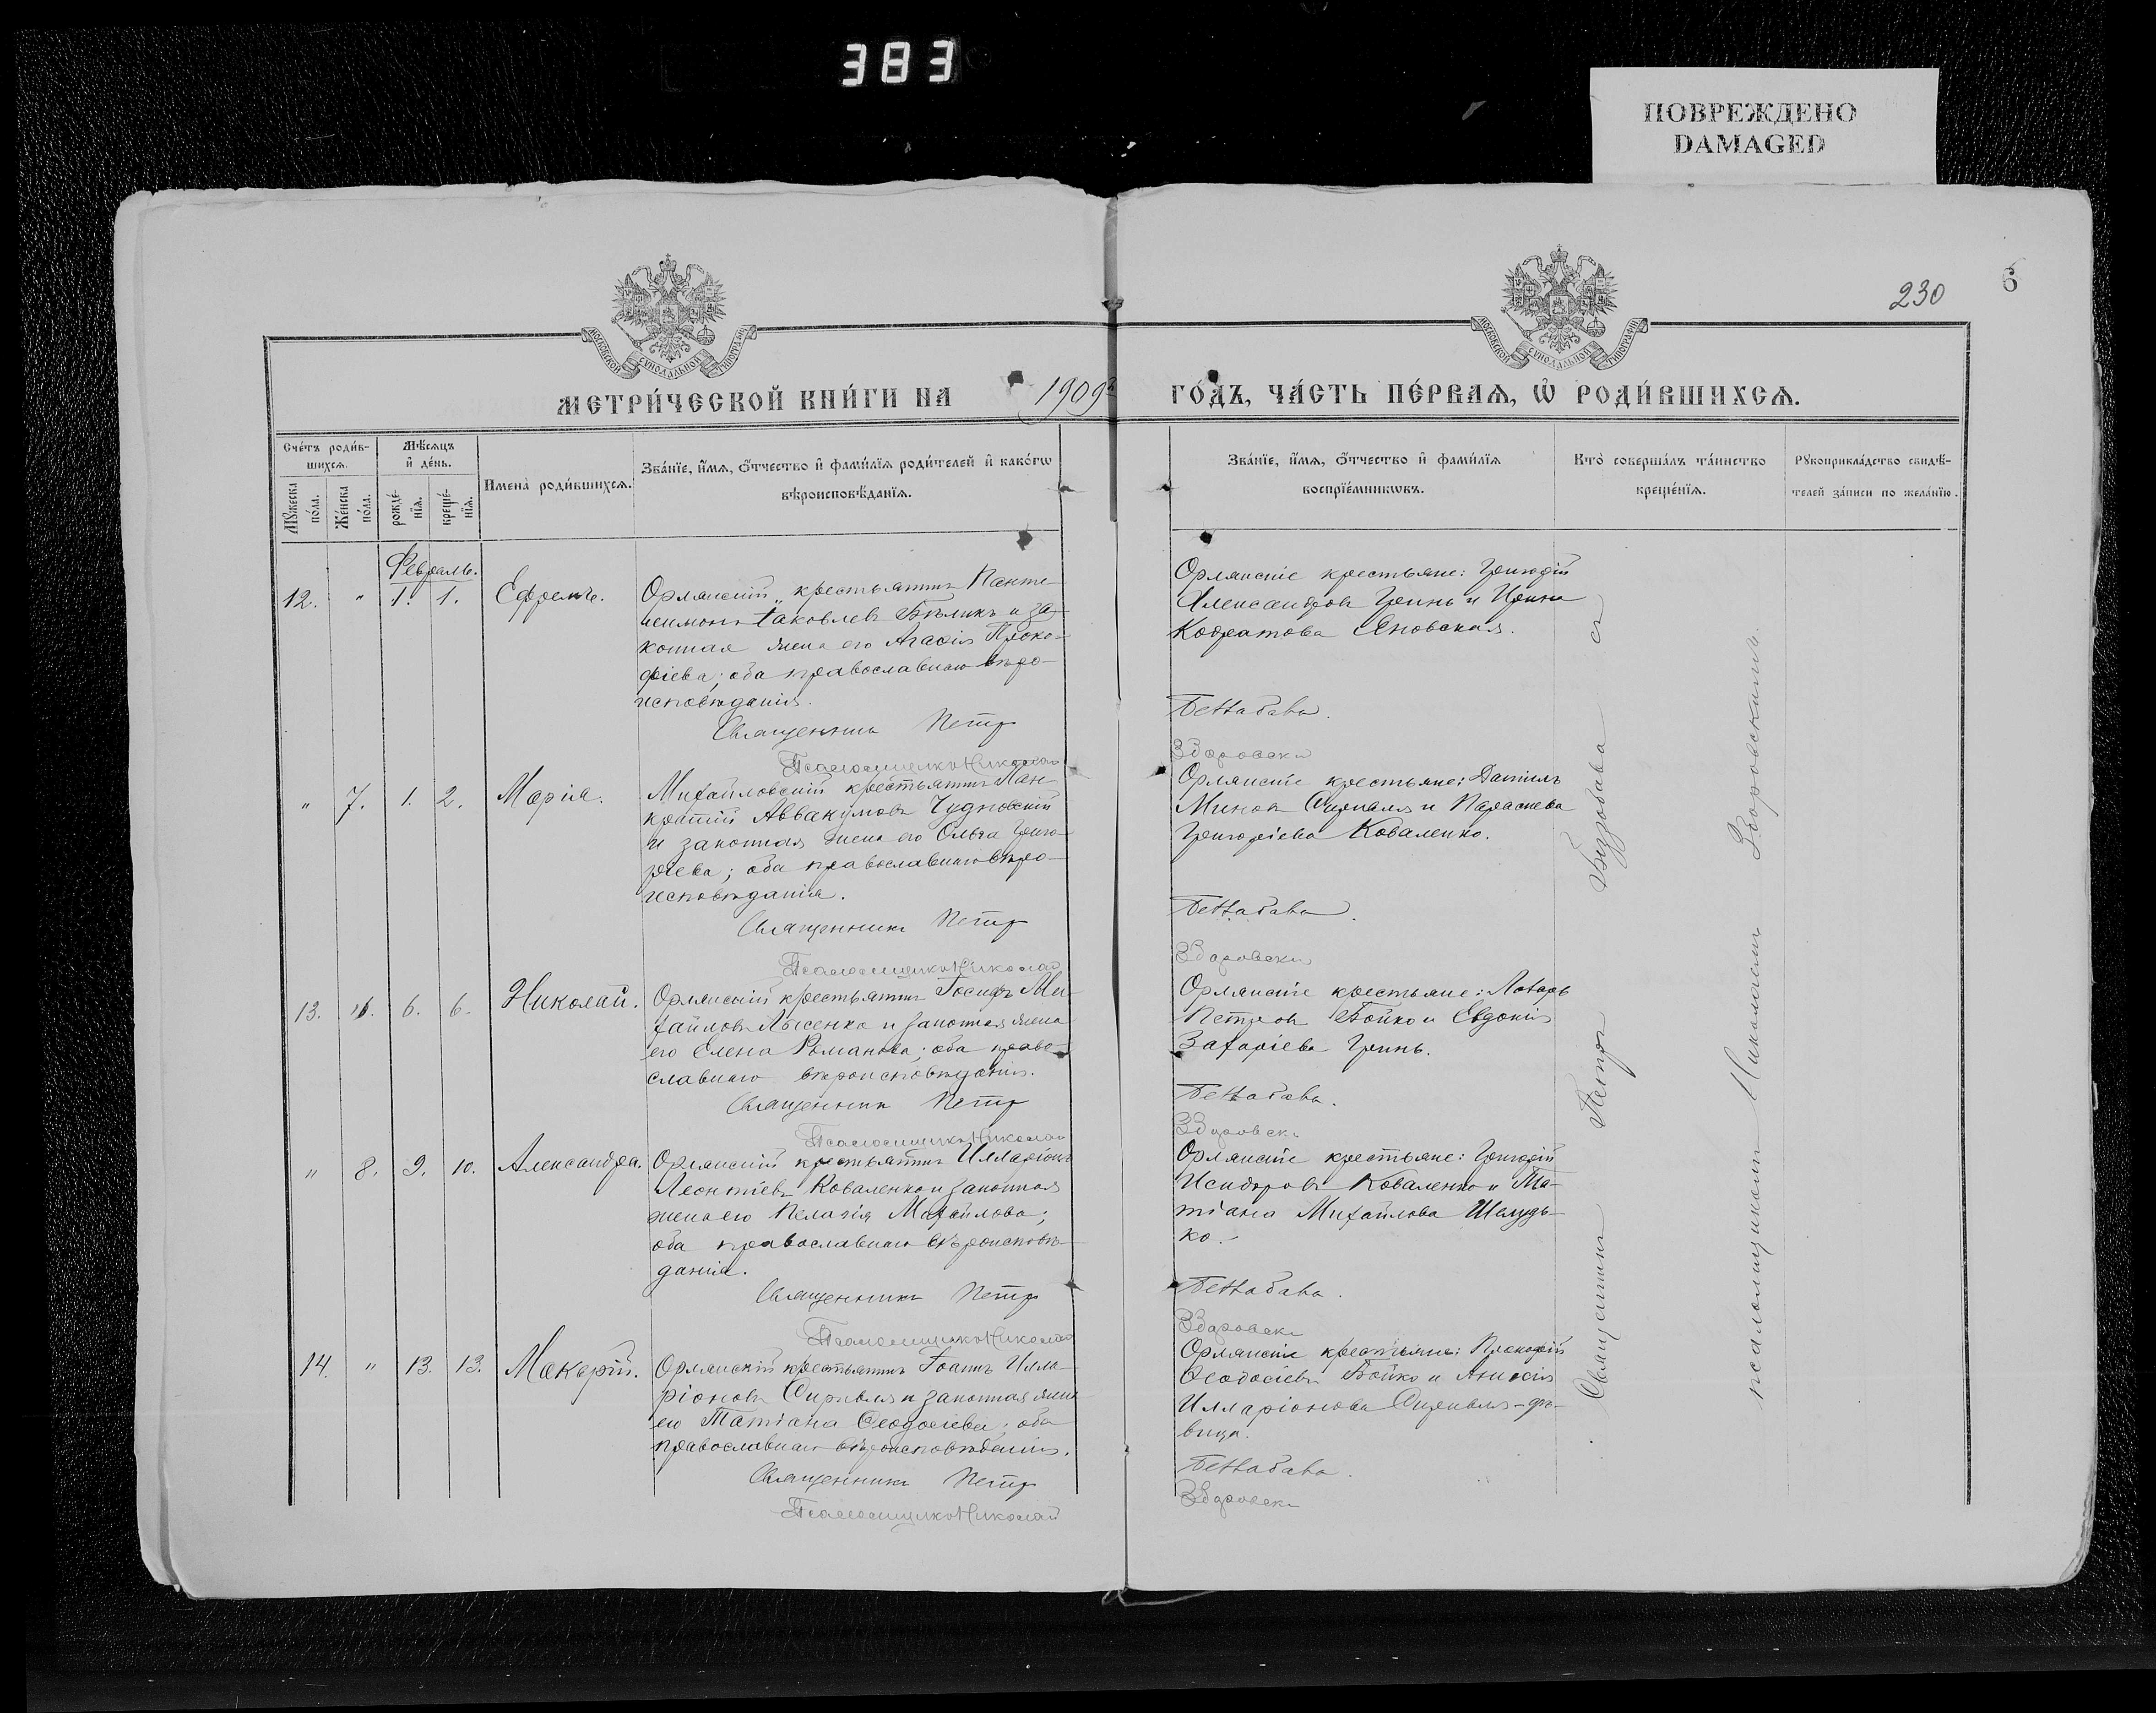 383
ПОВРЕЖДЕНО
DAMAGED
230
6
МОСКОВСКОЙ СѴНОДАЛЬНОЙ ТИПОГРАФІИ
МОСКОВСКОЙ СѴНОДАЛЬНОЙ ТИПОГРАФІИ
МЕТРИ́ЧЕСКОЙ КНИ́ГИ НА 1909й ГО́ДЪ, ЧА́СТЬ ПЕ́РВАѦ, Ѡ҆ РОДИ́ВШИХСѦ.
Сче́тъ роди́в-
шихсѧ.
Мꙋ́жеска по́ла.
Же́нска по́ла.
Мѣ́сѧцъ
и҆ де́нь.
рожде́-
нїѧ.
креще́-
нїѧ.
И҆мена̀ роди́вшихсѧ.
Зва́нїе, и҆́мѧ, ѻ҆́тчество и҆ фами́лїѧ роди́телей и҆ како́гѡ
вѣроисповѣ́данїѧ.
Зва́нїе, и҆́мѧ, ѻ҆́тчество и҆ фами́лїѧ
воспрїе́мникѡвъ.
Кто̀ соверша́лъ та́инство
креще́нїѧ.
Рꙋкоприкла́дство свидѣ́-
телей за́писи по жела́нїю.
Февраль.
12. " 1. 1. Ефремъ.
Орлянскій крестьянинъ Панте-
леимонъ Іаковлевъ Бѣликъ и за-
конная жена его Агафія Проко-
фіева; оба православнаго вѣро-
исповѣданія.
Священникъ Петр
Псаломщикъ Николай
Орлянскіе крестьяне: Григорій
Александровъ Гринь и Ирина
Кодратова Яновская.
Здоровскі
" 7. 1. 2. Марія.
Михайловскій крестьянинъ Пан-
кратій Аввакумовъ Чудновскій
и законная жена его Ольга Григо-
ріева; оба православнаго вѣро-
исповѣданія.
Священникъ Петр
Псаломщикъ Николай
Орлянскіе крестьяне: Даніилъ
Миновъ и Параскева
Григоріева Коваленко.
Здоровскі
13. ". 6. 6. Николай.
Орлянскій крестьянинъ Іосифъ Ми-
хайловъ Лысенко и законная жена
его Елена Романова; оба право-
славнаго вѣроисповѣданія.
Священникъ Петр
Псаломщикъ Николай
Орлянскіе крестьяне: Лазарь
Петровъ Бойко и Евдокія
Захаріева Гринь.
Здоровскі
" 8. 9. 10. Александра.
Орлянскій крестьянинъ Илларіонъ
Леонтіевъ Коваленко и законная
жена его Пелагія Михайлова;
оба православнаго вѣроисповѣ-
данія.
Священникъ Петр
Псаломщикъ Николай
Орлянскіе крестьяне: Григорій
Исидоровъ Коваленко и Та-
тіана Михайлова Шелудь-
ко.
Здоровскі
14. " 13. 13. Макарій.
Орлянскій крестьянинъ Іоаннъ Илла-
ріоновъ и законная жена
его Татіана Ѳеодосіева; оба
православнаго вѣроисповѣданія.
Священникъ Петр
Псаломщикъ Николай
Орлянскіе крестьяне: Прокофій
Ѳеодосіевъ Бойко и Анисія
Илларіонова дѣ-
вица.
Здоровскі
Священникъ Петръ съ
псаломщикомъ Николаемъ Здоровскимъ.